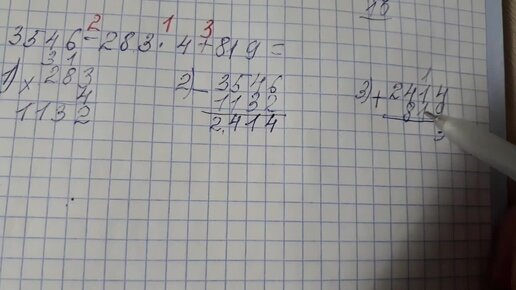 18
2 1 3
3546-283·4+819=
1) 31 2) 3546 3) 1
×283 -1132 +2414
4 2414 819
1132 3